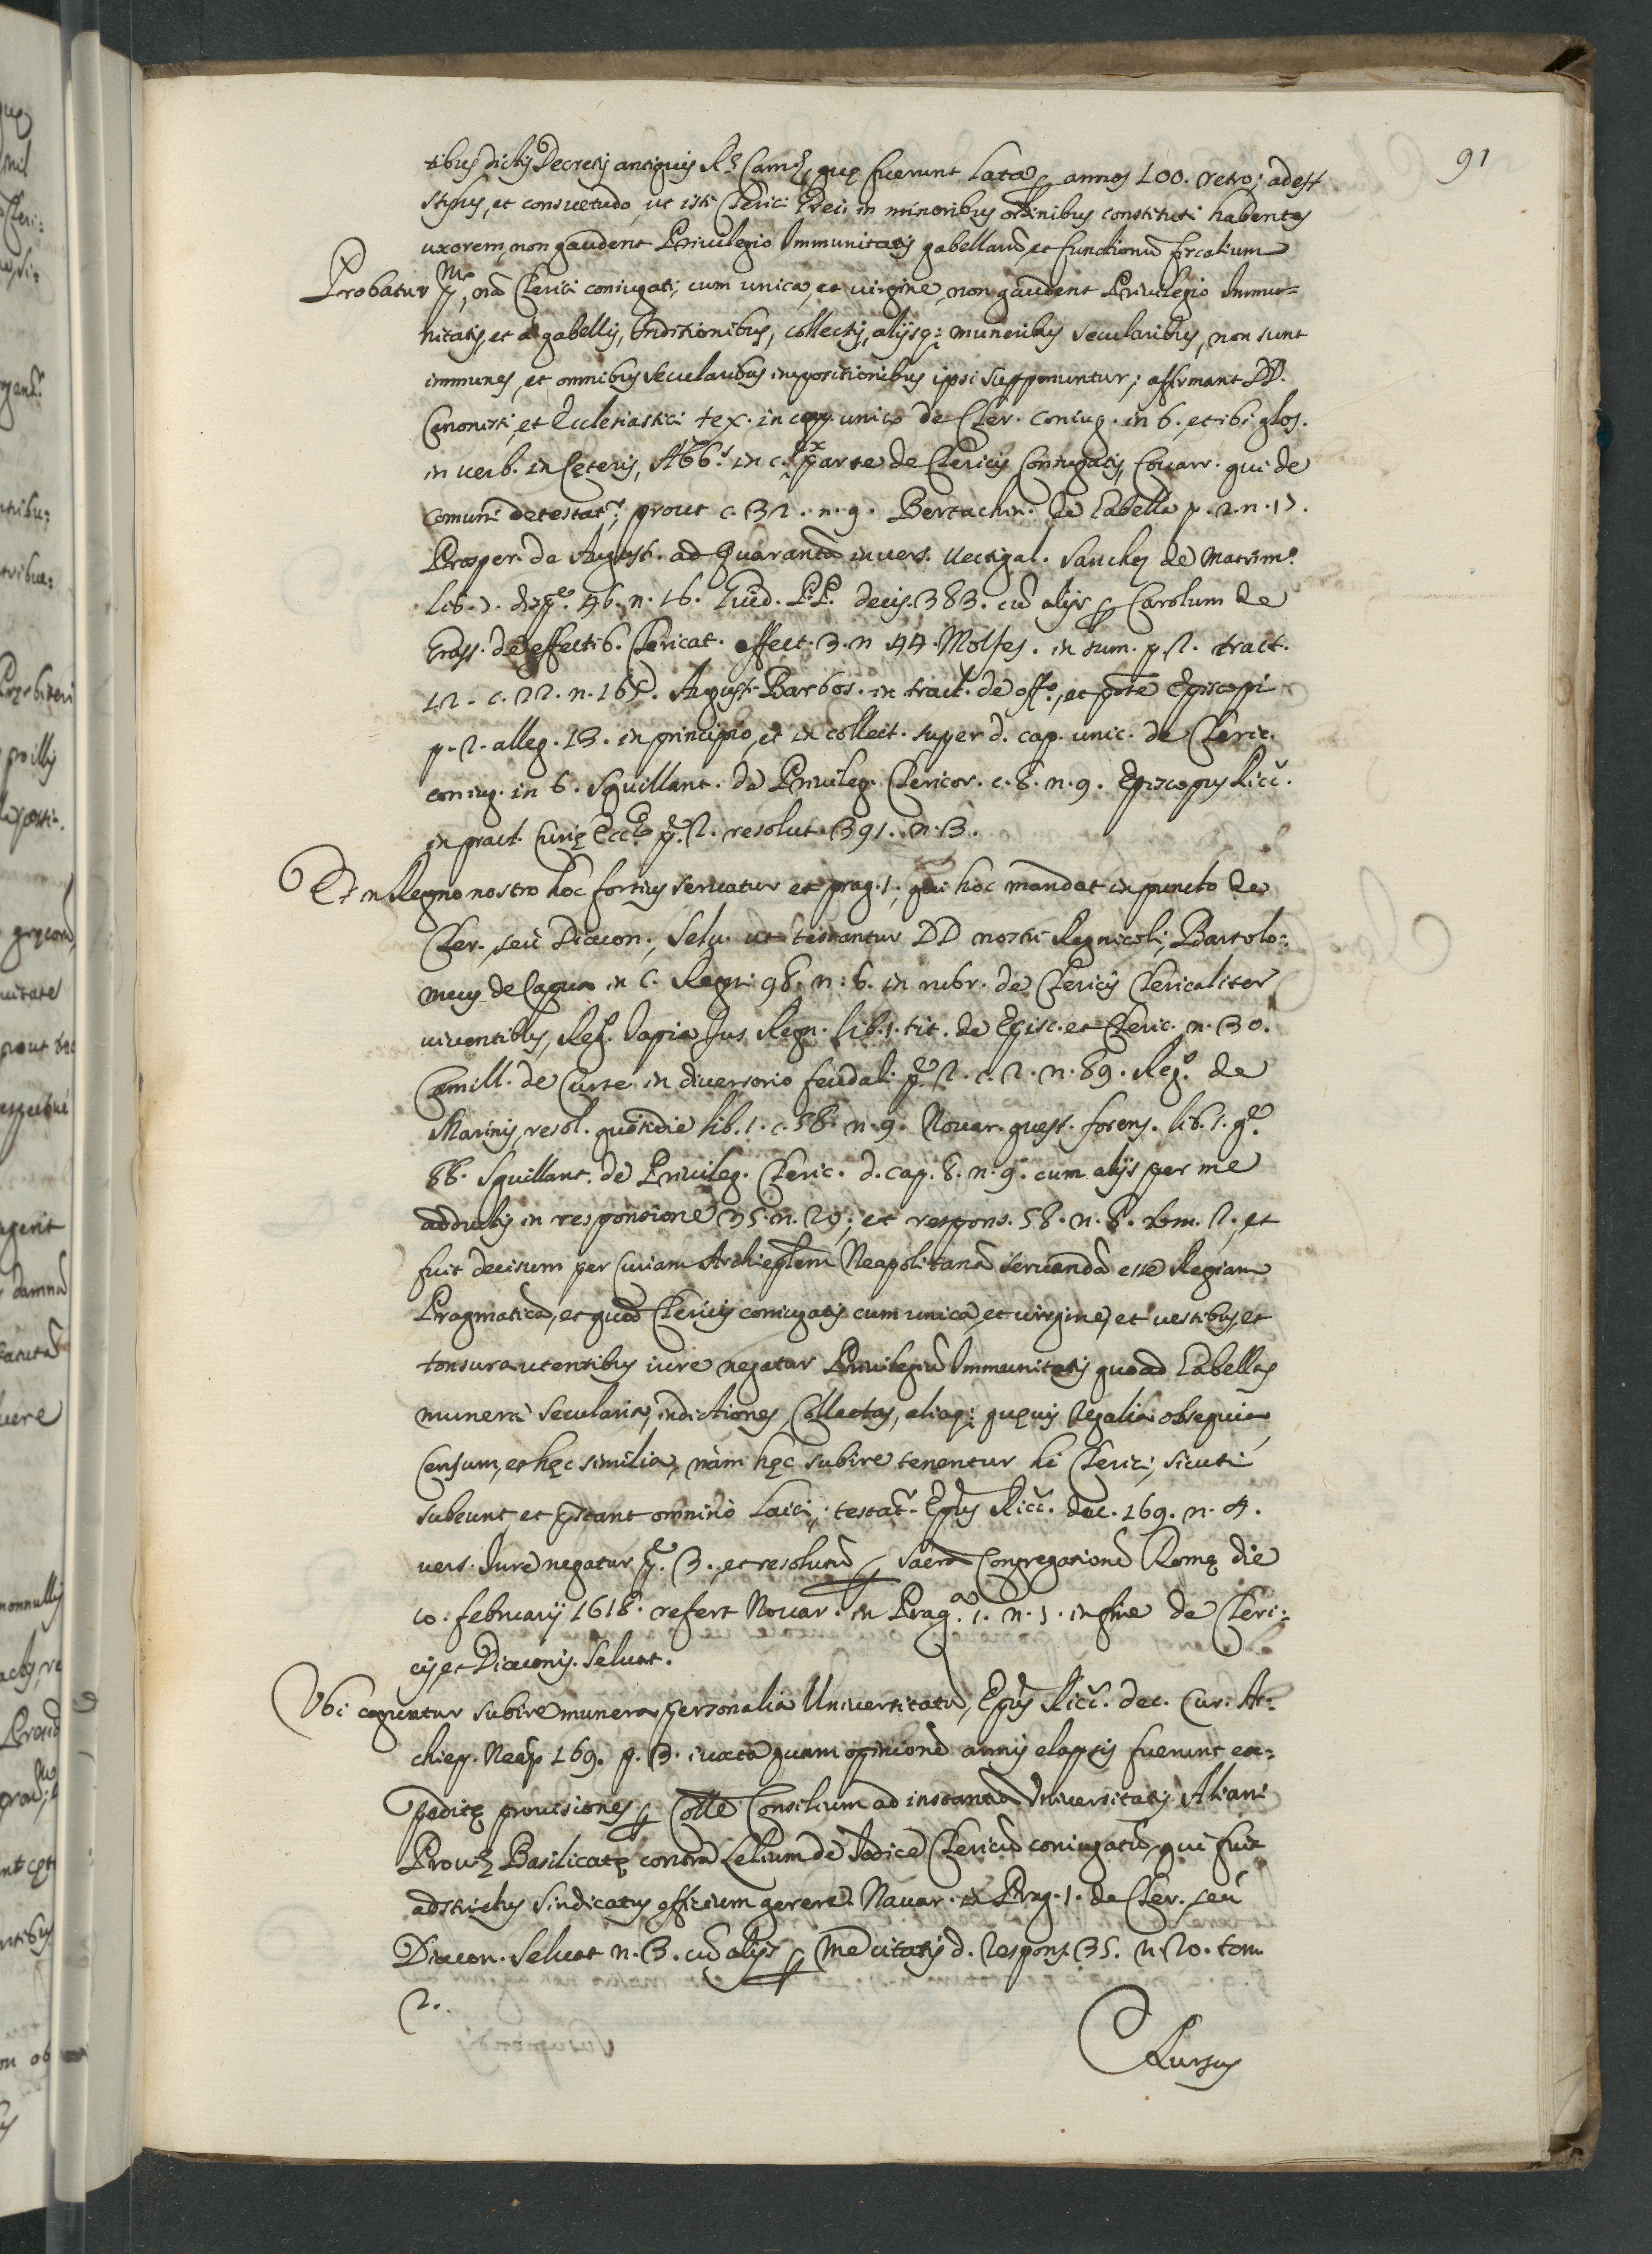 91
tibus dictis Decretis antiquis R.ę Camę, quę fuerunt lata ꝑ annos 100. retro; adest
stylus, et consuetudo, ut isti Clerici Gręci in minoribus ordinibus constituti habentes
uxorem, non gaudent Privilegio Immunitatis gabellarũ, et functionũ fiscalium
Probatur p.mo, nã Clerici coniugati, cum unica, et virgine, non gaudent Privilegio Immu=
nitatis, et à gabellis, Inditionibus, collectis, alijsq; muneribus secularibus, non sunt
immunes, et omnibus secularibus impositionibus ipsi supponuntur; affirmant DD.
Canonisti, et Ecclesiastici tex. in cap. unico de Cler. coniug. in 6. et ibi glos.
in verb. in cęteris, Abb.s in c. ex parte de Clericis Coniugatis, Covarr. qui de
comuni detestat.r, prout c. 32. n. 9. Bertachin. de Gabella p. 2. n. 17.
Prosper. de August. ad Quarantã in vers. Vectigal. Sanches de Matrim.o
lib. 7. disp.e 46. n. 16. Guid. P.P. decis. 383. cũ alijs ꝑ Carolum de
Grass. de effectib. Clericat. effect. 3. n 44. Molfes. in sum. p. 2. tract.
12. c. 22. n. 165. August. Barbos. in tract. de off.o, et p̃ote Episcopi
p. 2. alleg. 13. in principio, et in collect. super d. cap. unic. de Cleric.
coniug. in 6. Squillant. de Privileg. Clericor. c. 8. n. 9. Episcopus Ricc.
in pract. Curię Ecc.ę p. 2. resolut. 391. n. 3.
Et in Regno nostro hoc fortius servatur ex prag. 1. qui hoc mandat in puncto de
Cler. seù Diacon. Selv. ut testantur DD nostri Regnicoli, Bartolo=
meus de Capua in C. Regni 98. n. 6. in rubr. de Clericis Clericaliter
viventibus, Reg. Tapia Jus Regn. lib. 1. tit. de Episc. et Cleric. n. 30.
Camill. de Curte in diversorio feudali p. 2. c. 2. n. 89. Reg. de
Marinis resol. quotidie lib. 1. c. 58. n. 9. Novar. quęst. forens. lib. 1. q.
88. Squillant. de Privileg. Cleric. d. cap. 8. n. 9. cum alijs per me
adductis in responsione 35. n. 20, et respons. 58. n. 8. tom. 2. et
fuit decisum per Curiam Archiep̃lem Neapolitanã servandã esse Regiam
Pragmaticã, et quod Clericis coniugatis cum unica, et virgine, et vestibus, et
tonsura utentibus iure negatur Privilegiũ Immunitatis quoad Gabellas
munera secularia, indictiones, Collectas, aliaq; quęvis regalia obsequia,
Censum, et hęc similia, nàm hęc subire tenentur hi Clerici, sicuti
subeunt, et p̃stant omninò laici, testat.r Ep̃us Ricc. dec. 169. n. 4.
vers. Iure negatur p. 3. et resolutũ ꝑ Sacrã Congregationẽ Romę die
10. februarij 1618. refert Novar. in Prag.a 1. n. 1. in fine de Cleri=
cis, et Diaconis Selvat.
Ubi coguntur subire munera personalia Universitatũ, Ep̃us Ricc. dec. Cur. Ar=
chiep. Neap 169. p. 3. iuxta quam opinionẽ annis elapsis fuerunt ex=
peditę provisiones ꝑ Colle Consilium ad instantiã Universitatis Aliani
Provę Basilicatę contra Lelium de Iodice Clericũ coniugatũ, qui fuit
adstrictus sindicatus officium gerere. Navar. in Prag. 1. de Cler. seu
Diacon. Selvat n. 3. cũ alijs ꝑ me citatis d. respons. 35. n. 20. tom.
2.
Rursus